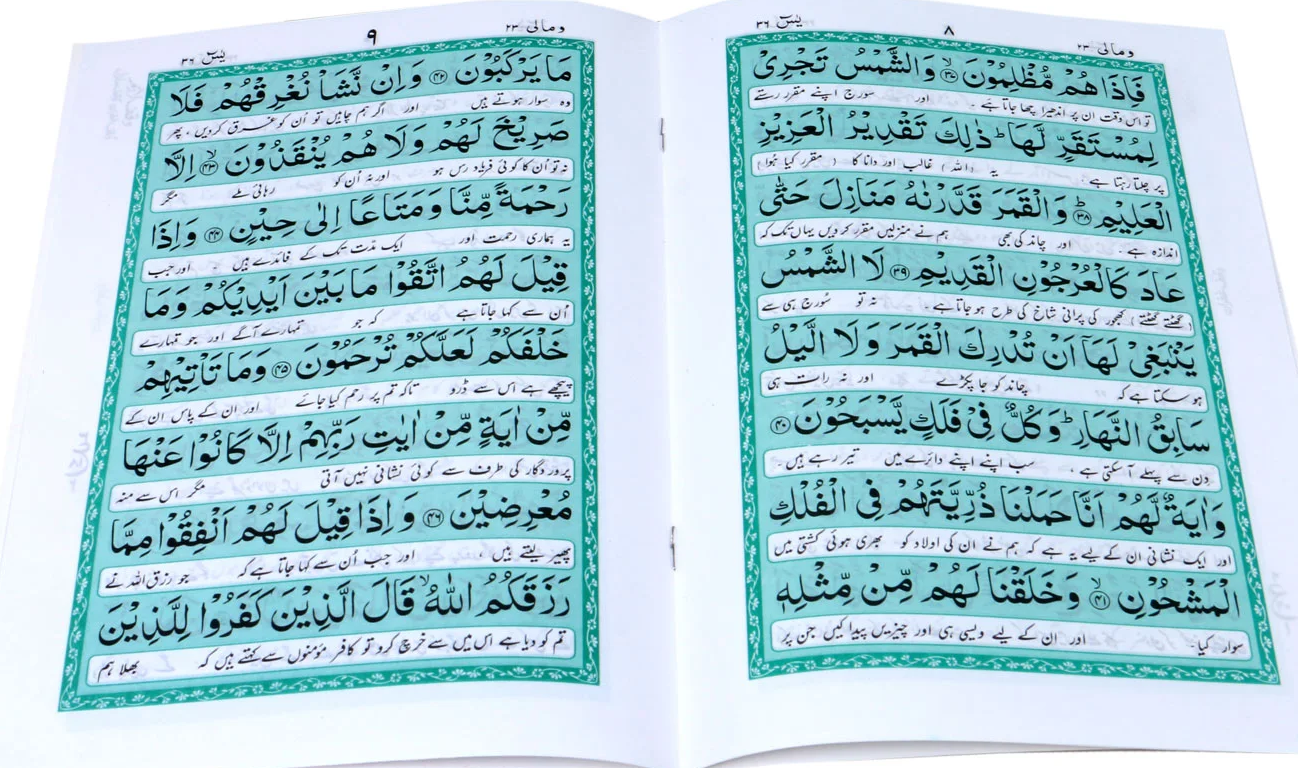 ومالی ۲۳
۸
یٰسٓ ۳۶
فَاِذَا هُمْ مُّظْلِمُوْنَ ۙ﴿۳۷﴾ وَالشَّمْسُ تَجْرِیْ
تو اس وقت ان پر اندھیرا چھا جاتا ہے ۔ اور سورج اپنے مقرر رستے
لِمُسْتَقَرٍّ لَّهَا ؕ ذٰلِكَ تَقْدِیْرُ الْعَزِیْزِ
پر چلتا رہتا ہے۔ یہ (اللہ) غالب اور دانا کا (مقرر کیا ہُوا)
الْعَلِیْمِ ؕ﴿۳۸﴾ وَالْقَمَرَ قَدَّرْنٰهُ مَنَازِلَ حَتّٰی
اندازہ ہے ۔ اور چاند کی بھی ہم نے منزلیں مقرر کر دیں یہاں تک کہ
عَادَ كَالْعُرْجُوْنِ الْقَدِیْمِ ﴿۳۹﴾ لَا الشَّمْسُ
(گھٹتے گھٹتے) کھجور کی پرانی شاخ کی طرح ہو جاتا ہے۔ نہ تو سُورج ہی سے
یَنْۢبَغِیْ لَهَاۤ اَنْ تُدْرِكَ الْقَمَرَ وَلَا الَّیْلُ
ہو سکتا ہے کہ چاند کو جا پکڑے اور نہ رات ہی
سَابِقُ النَّهَارِ ؕ وَكُلٌّ فِیْ فَلَكٍ یَّسْبَحُوْنَ ﴿۴۰﴾
دن سے پہلے آسکتی ہے ، سب اپنے اپنے دائرے میں تیر رہے ہیں ۔
وَاٰیَةٌ لَّهُمْ اَنَّا حَمَلْنَا ذُرِّیَّتَهُمْ فِی الْفُلْكِ
اور ایک نشانی ان کے لیے یہ ہے کہ ہم نے ان کی اولاد کو بھری ہوئی کشتی میں
الْمَشْحُوْنِ ۙ﴿۴۱﴾ وَخَلَقْنَا لَهُمْ مِّنْ مِّثْلِهٖ
سوار کیا۔ اور ان کے لیے ویسی ہی اور چیزیں پیدا کیں جن پر
ومالی ۲۳
۹
یٰسٓ ۳۶
مَا یَرْكَبُوْنَ ﴿۴۲﴾ وَاِنْ نَّشَاْ نُغْرِقْهُمْ فَلَا
وہ سوار ہوتے ہیں اور اگر ہم چاہیں تو اُن کو غرق کردیں ، پھر
صَرِیْخَ لَهُمْ وَلَا هُمْ یُنْقَذُوْنَ ۙ﴿۴۳﴾ اِلَّا
نہ تو اُن کا کوئی فریاد رس ہو اور نہ اُن کو رہائی ملے مگر
رَحْمَةً مِّنَّا وَمَتَاعًا اِلٰی حِیْنٍ ﴿۴۴﴾ وَاِذَا
یہ ہماری رحمت اور ایک مدّت تک کے فائدے ہیں ۔ اور جب
قِیْلَ لَهُمُ اتَّقُوْا مَا بَیْنَ اَیْدِیْكُمْ وَمَا
اُن سے کہا جاتا ہے کہ جو تمہارے آگے اور جو تمہارے
خَلْفَكُمْ لَعَلَّكُمْ تُرْحَمُوْنَ ﴿۴۵﴾ وَمَا تَاْتِیْهِمْ
پیچھے ہے اس سے ڈرو تاکہ تم پر رحم کیا جائے اور ان کے پاس ان کے
مِّنْ اٰیَةٍ مِّنْ اٰیٰتِ رَبِّهِمْ اِلَّا كَانُوْا عَنْهَا
پروردگار کی طرف سے کوئی نشانی نہیں آتی مگر اس سے منہ
مُعْرِضِیْنَ ﴿۴۶﴾ وَاِذَا قِیْلَ لَهُمْ اَنْفِقُوْا مِمَّا
پھیر لیتے ہیں ، اور جب اُن سے کہا جاتا ہے کہ جو رزق اللہ نے
رَزَقَكُمُ اللّٰهُ ۙ قَالَ الَّذِیْنَ كَفَرُوْا لِلَّذِیْنَ
تم کو دیا ہے اس میں سے خرچ کرو تو کافر مؤمنوں سے کہتے ہیں کہ بھلا ہم